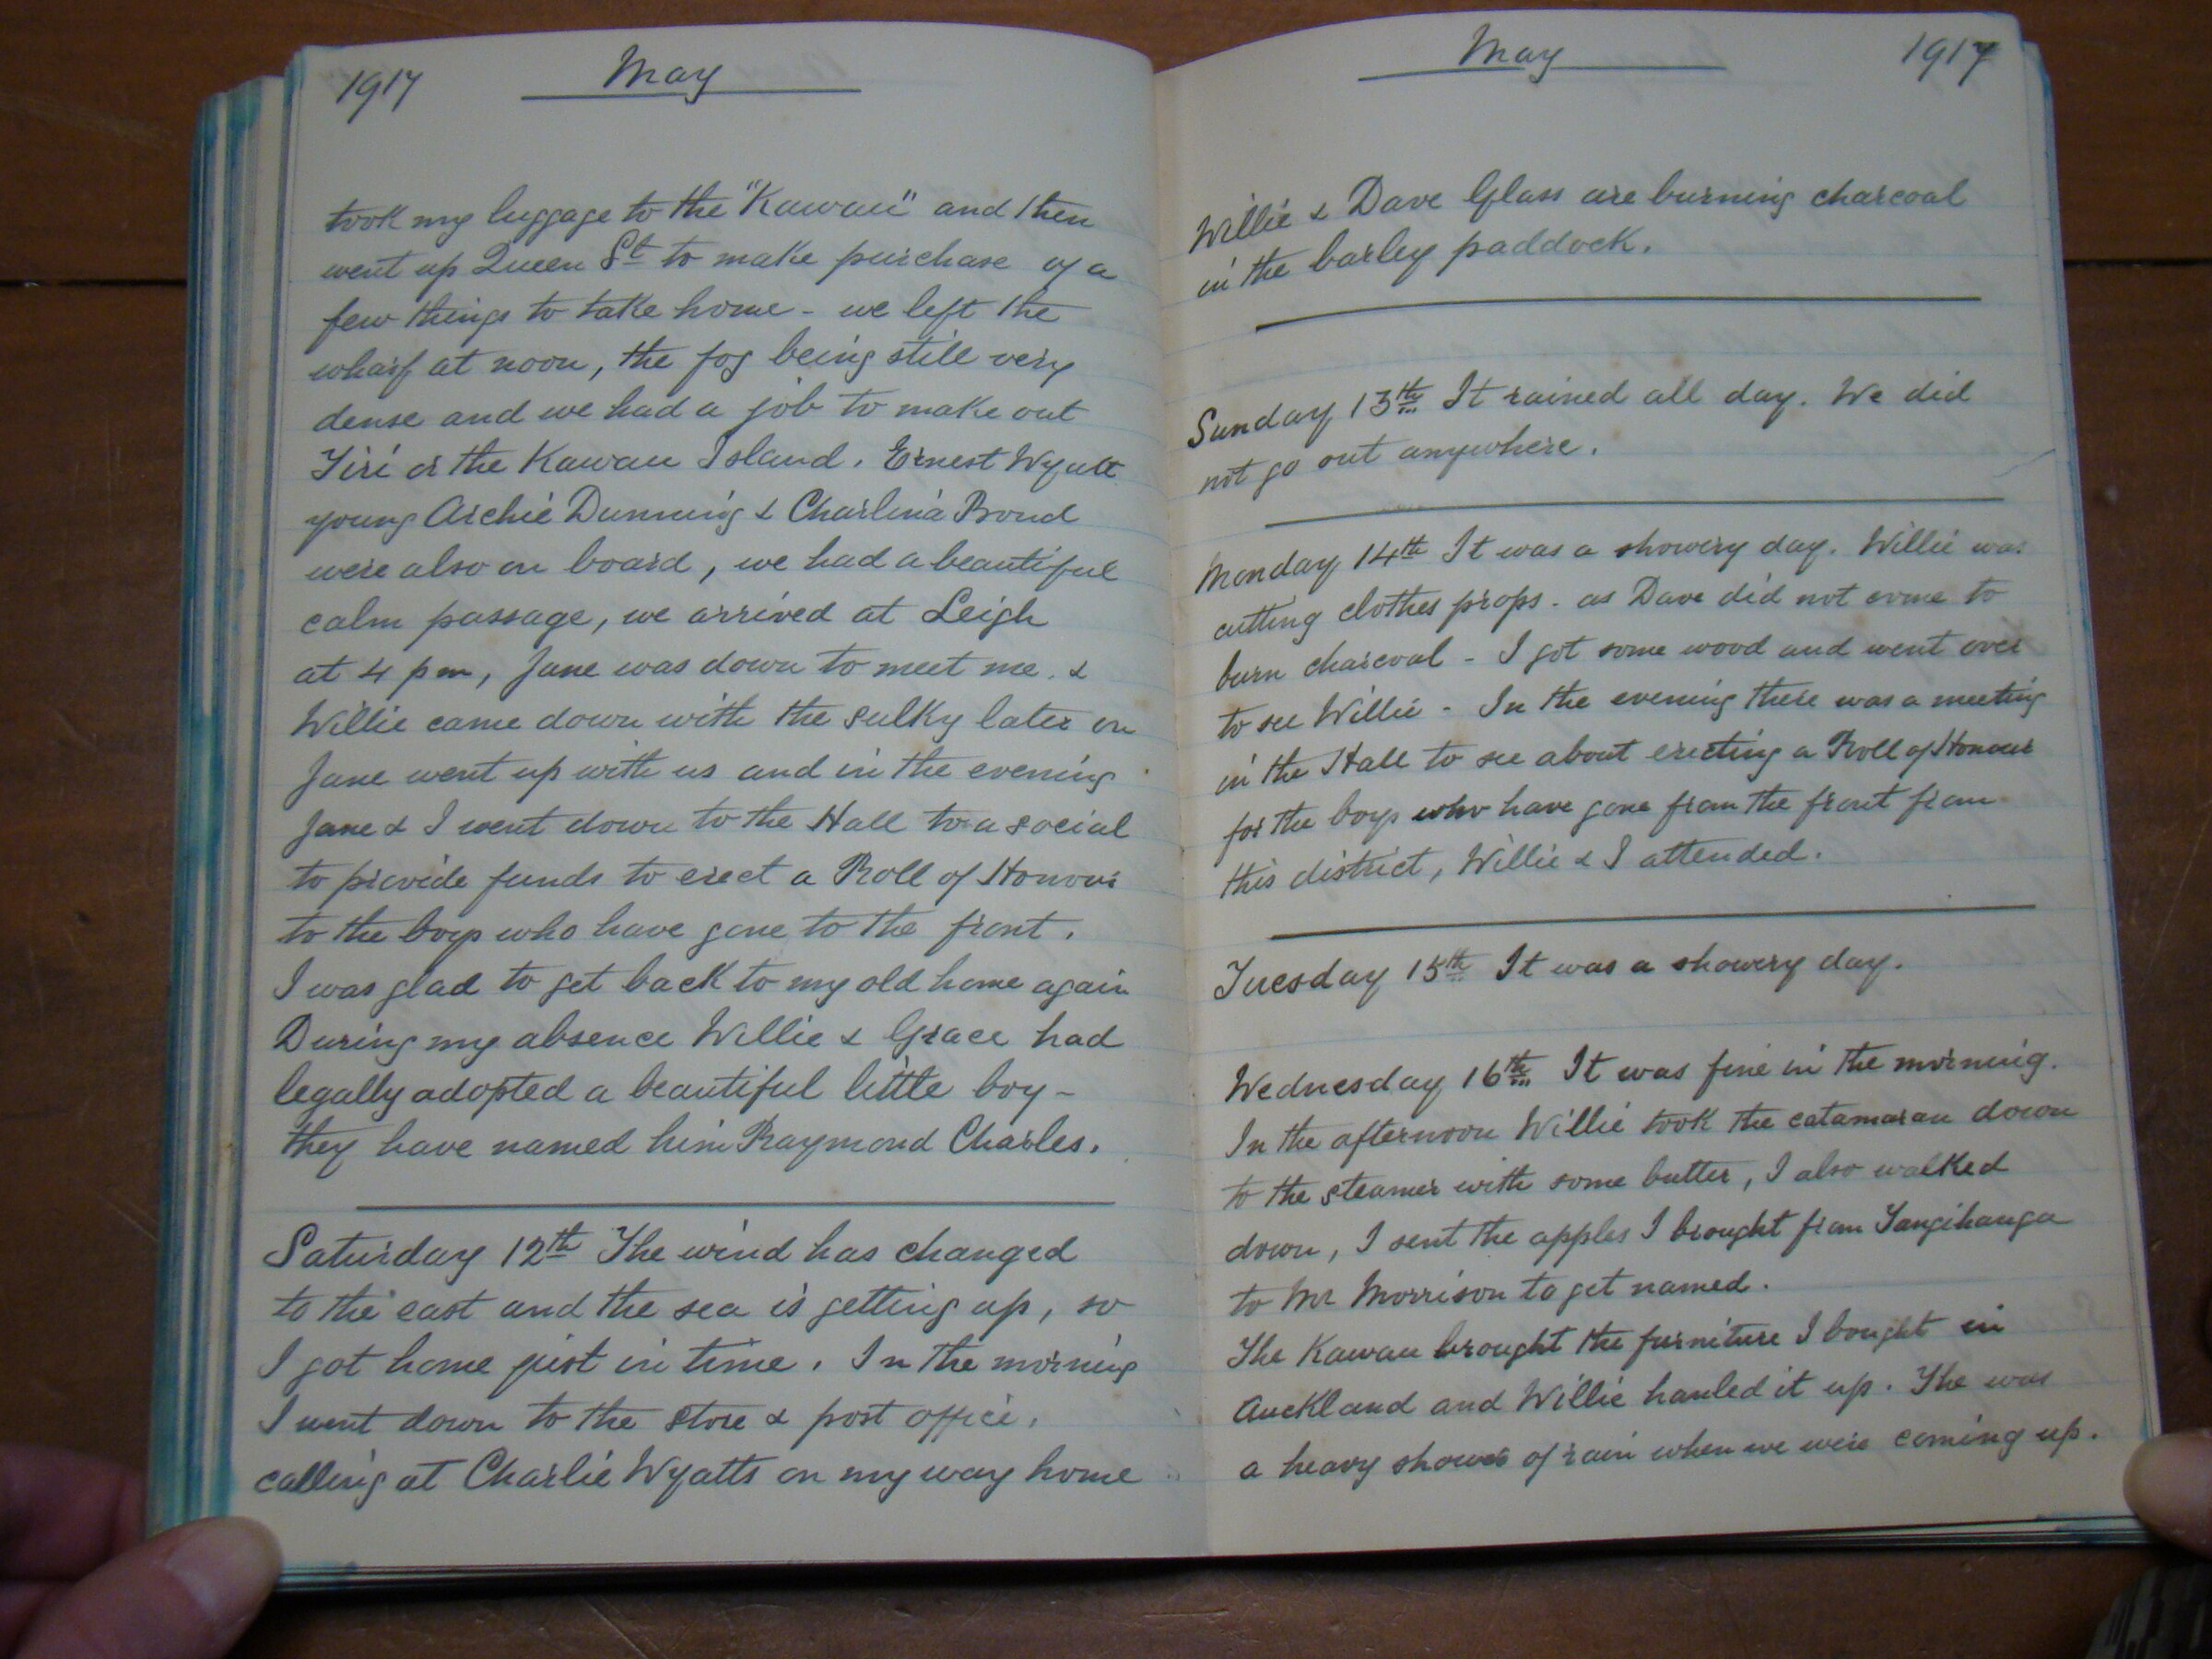 1917 May
took my luggage to the "Kawau" and then
went up Queen St to make purchase of a
few things to take home - we left the
wharf at noon, the fog being still very
dense and we had a job to make out
Tiri or the Kawau Island. Ernest Wyatt
young Archie Dunning & Charlina Proud
were also on board, we had a beautiful
calm passage, we arrived at Leigh
at 4 pm, Jane was down to meet me. &
Willie came down with the sulky later on
Jane went up with us and in the evening
Jane & I went down to the Hall to a social
to provide funds to erect a Roll of Honour
to the boys who have gone to the front.
I was glad to get back to my old home again
During my absence Willie & Grace had
legally adopted a beautiful little boy -
they have named him Raymond Charles.
Saturday 12th The wind has changed
to the east and the sea is getting up, so
I got home just in time. In the morning
I went down to the store & post office,
calling at Charlie Wyatts on my way home
May 1917
Willie & Dave Glass are burning charcoal
in the barley paddock.
Sunday 13th It rained all day. We did
not go out anywhere.
Monday 14th It was a showery day. Willie was
cutting clothes props - as Dave did not come to
burn charcoal - I got some wood and went over
to see Willie - In the evening there was a meeting
in the Hall to see about erecting a Roll of Honour
for the boys who have gone from the front from
this district, Willie & I attended.
Tuesday 15th It was a showery day.
Wednesday 16th It was fine in the morning.
In the afternoon Willie took the catamaran down
to the steamer with some butter, I also walked
down, I sent the apples I brought from Tangihanga
to Mr Morrison to get named.
The Kawau brought the furniture I bought in
Auckland and Willie hauled it up. The was
a heavy shower of rain when we were coming up.